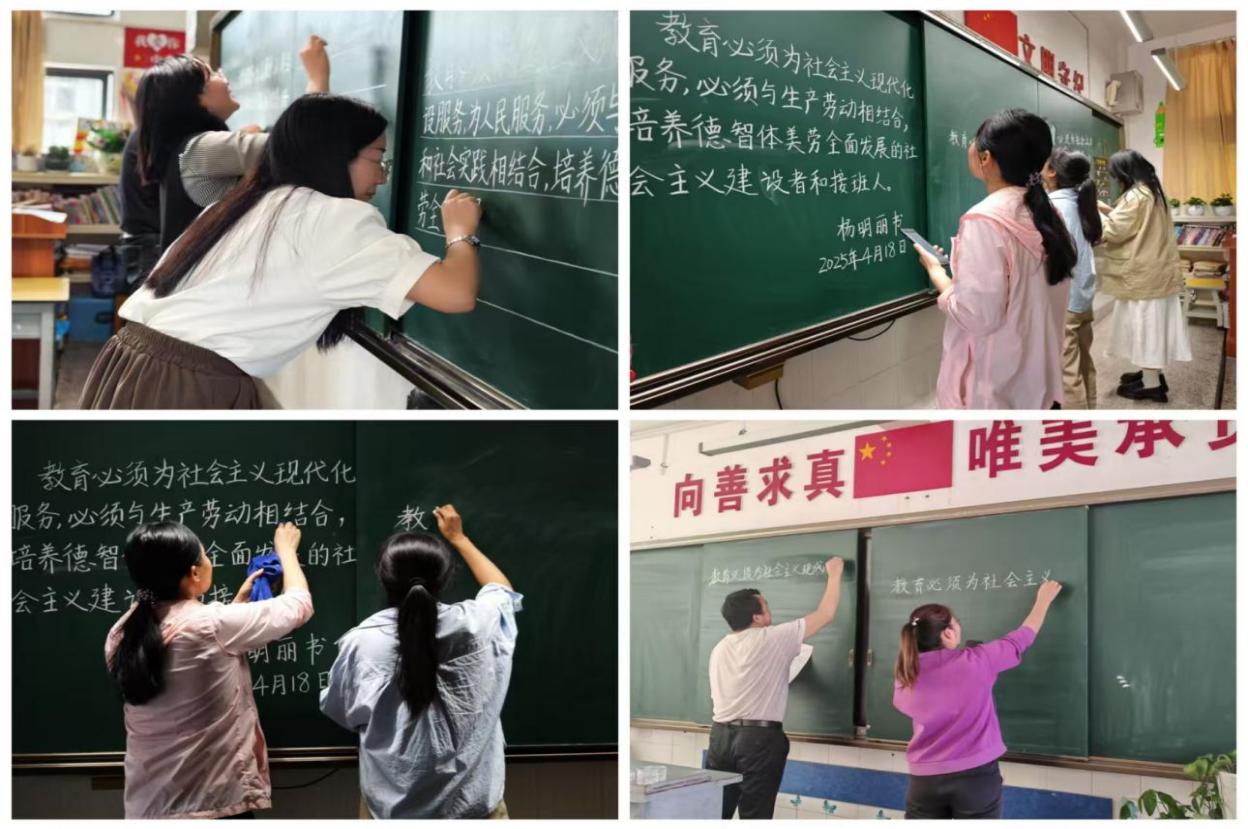 我 你
设服务,为人民服务,必须与
和社会实践相结合,培养德
劳全
教育必须为社会主义现代化
服务,必须与生产劳动相结合,
培养德智体美劳全面发展的社
会主义建设者和接班人。
杨明丽书
2025年4月18日
文明守纪
教育必须为社会主义现代化
服务,必须与生产劳动相结合,
培养德智 全面发 的社
会主义建
明丽书
4月18日
教
向善求真
唯美承
教育必须为社会主义现代
教育必须为社会主义